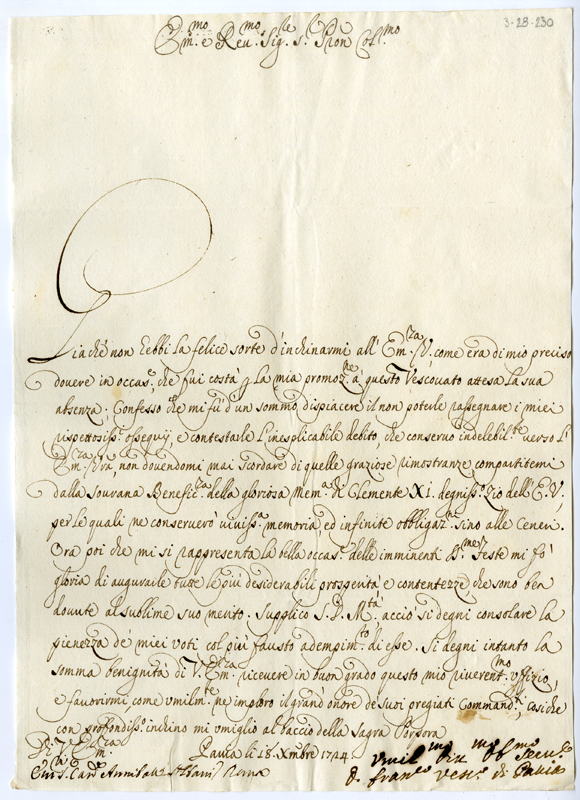 3-28-230
Em.mo e Reu.mo Sig.re S.r Pron Col.mo
Giachè non hebbi la felice sorte d'inchinarmi all' Em.za V., come era di mio preciso
douere in occas.e, che fui costà p la mia promoz.ne à questo Vescouato attesa la sua
absenza; Confesso che mi fù d'un sommo dispiacere il non poterle rassegnare i miei
rispettosiss.i ossequij, e contestarle l'inesplicabile debito, che conseruo indelebil.te verso l'
Em.za Vra, non douendomi mai scordare di quelle graziose rimostranze compartitemi
dalla Sourana Benefic.za della gloriosa Mem.a di Clemente XI. degniss.o Zio dell' E. V.,
per le quali ne conseruerò viuiss.a memoria, ed infinite obbligaz.ni sino alle Ceneri.
Ora poi che mi si rappresenta la bella occas.e delle imminenti S.me Feste mi fò
gloria di augurarle tutte le più desiderabili prosperità e contentezze, che sono ben
douute al sublime suo merito. Supplico S. D. M.tà, acciò si degni consolare la
pienezza de' miei voti col più fausto adempim.to di esse. Si degni intanto la
somma benignità di V. Em.za riceuere in buon grado questo mio riuerent.mo vffizio,
e fauorirmi, come vmilm.te ne imploro il grand' onore de suoi pregiati Command.i, cosiche
con profondiss.o inchino mi vmiglio al baccio della Sagra Porpora
Di V. Em.za
Pauia li 18. Xmbre 1724
Em.o S. Card. Annibale Albani Roma
vmil.mo diu.mo obb.mo Seru.e
F. Fran.co Vesc.o di Pauia